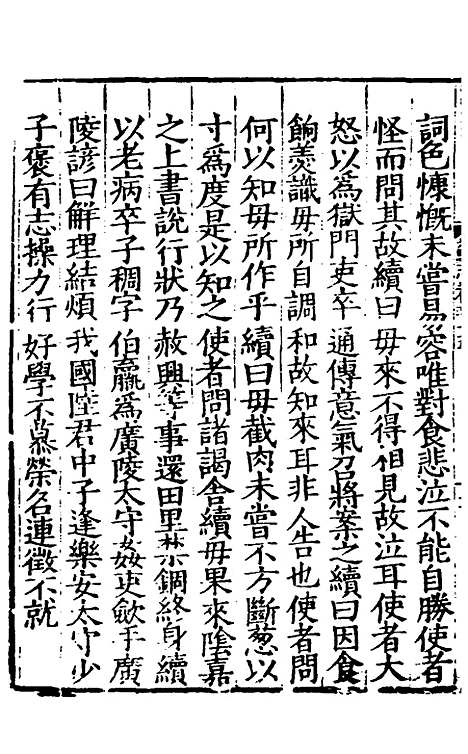 詞色慷慨未嘗易容唯對食悲泣不能自勝使者
怪而問其故續曰母來不得相見故泣耳使者大
怒以爲獄門吏卒通傳意氣召將案之續曰因食
餉羮識母所自調和故知來耳非人告也使者問
何以知母所作乎續曰母截肉未嘗不方斷葱以
寸爲度是以知之使者問諸謁舍續母果來陰嘉
之上書說行狀乃赦興等事還田里禁錮終身續
以老病卒子稠字伯嬴爲廣陵太守姦吏斂手廣
陵諺曰解理結煩我國陸君中子逢樂安太守少
子褒有志操力行好學不慕榮名連徵不就